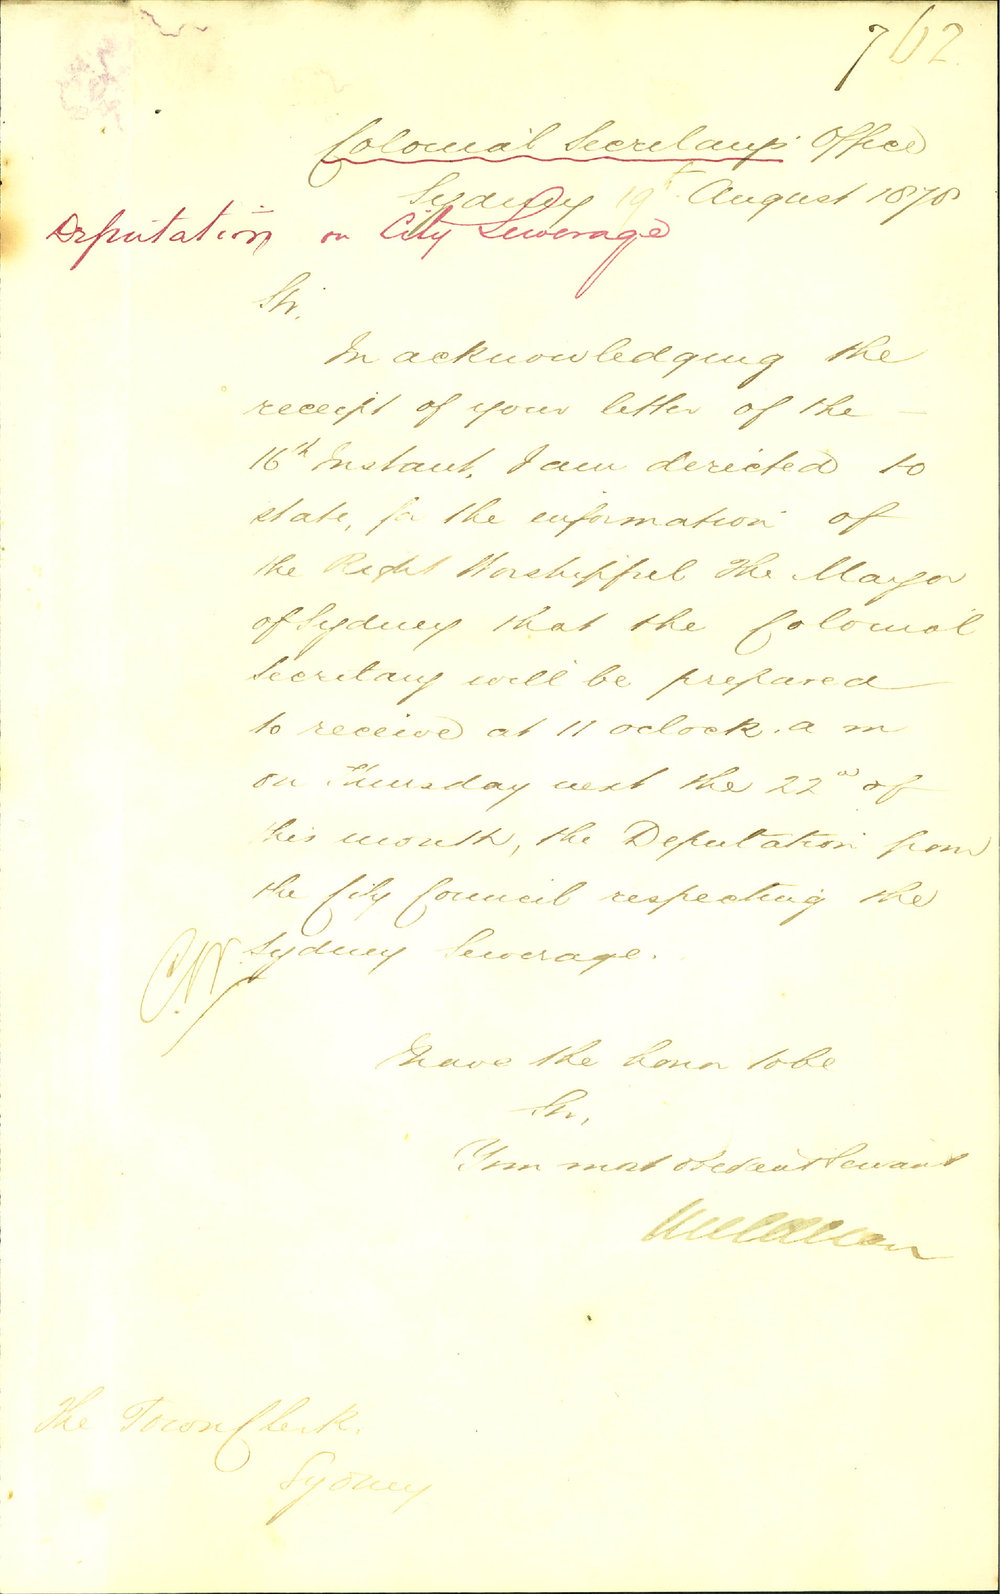 762
Colonial Secretary's Office
Sydney 19th August 1878
Deputation on City Sewerage
Sir,
In acknowledging the
receipt of your letter of the
16th Instant, I am derected to
state, for the information of
the Right Worshipful the Mayor
of Sydney that the Colonial
Secretary will be prepared
to receive at 11 oclock. a m
on Thursday next the 22nd of
this month, the Deputation from
the City Council respecting the
Sydney Sewerage.
I have the honor to be
Sir,
Your most obedient Servant
The Town Clerk.
Sydney